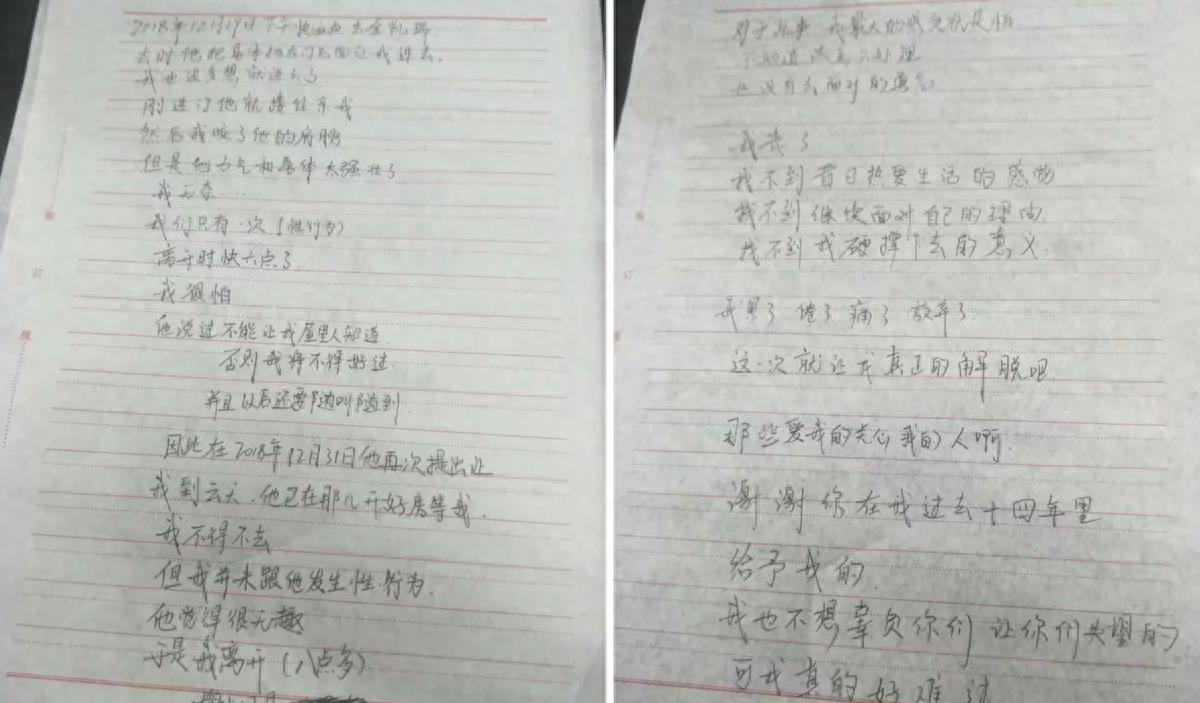 2018年12月29日下午快五点 去金凯瑞
去时他把身体 在门后面让我进去.
我也没多想 就进去了
刚进门他就搂住亲我
然后我咬了他的肩膀
但是他力气和身体太强壮了
我无奈……
我们只有一次(性行为)
离开时快六点了
我很怕
他说过不能让我屋里人知道
否则我将不得好过.
并且以后还要随叫随到.
因此在2018年12月31日他再次提出让
我到云天.他已在那儿开好房等我.
我不得不去
但我并未跟他发生性行为.
他觉得很无趣
于是我离开(八点多)
对于此事 我最大的感觉就是怕
不知道该怎么处理
也没有去面对的勇气
我丧了
找不到昔日热爱生活的感觉
找不到继续面对自己的理由
找不到我硬撑下去的意义.
我累了 倦了 痛了 放弃了
这一次就让我真正的解脱吧
那些爱我的关心我的人啊.
谢谢你在我过去十四年里
给予我的
我也不想辜负你们 让你们失望的
可我真的好难过